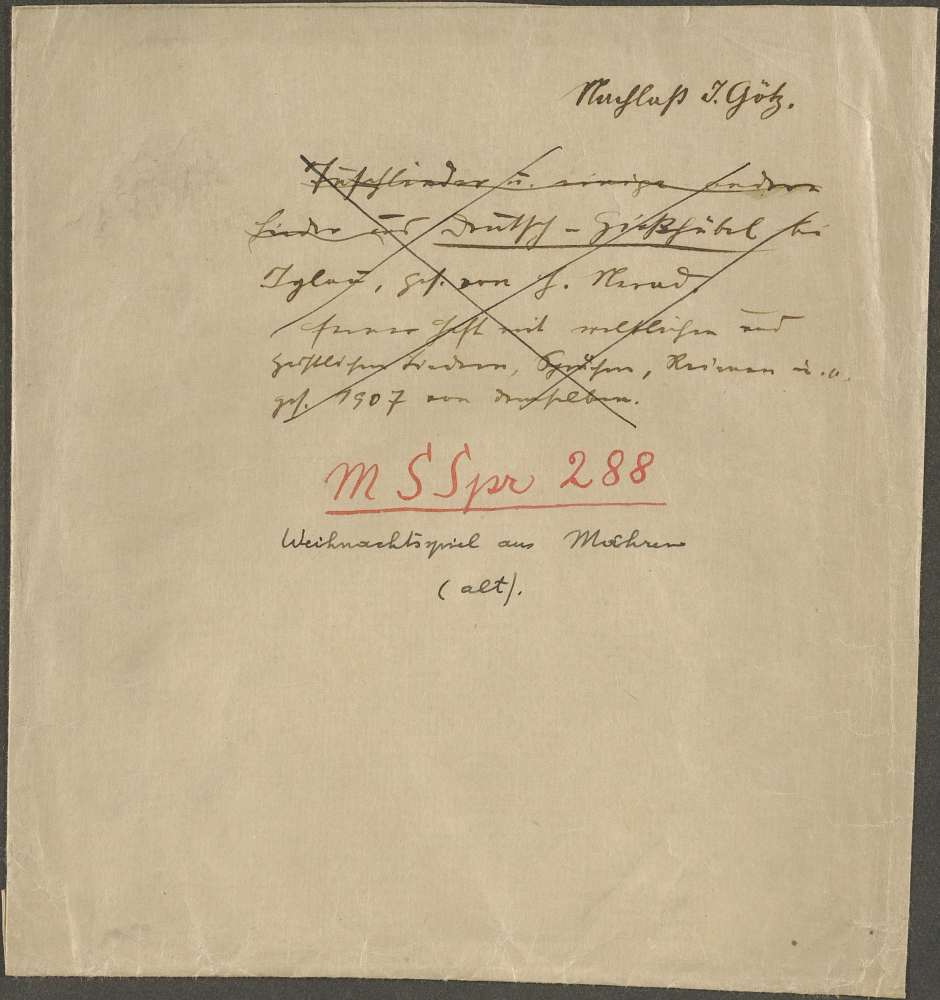 Nachlaß J. Götz.
Tuschlieder u. einige andere
Lieder aus Deutsch - Gießhübel bei
Iglau, ges. von H. Nerad,
ferner Heft mit weltlichen und
geistlichen Liedern, Sprüchen, Reimen u. a.
ges. 1907 von demselben.
M S Spr 288
Weihnachtsspiel aus Mähren
(alt).